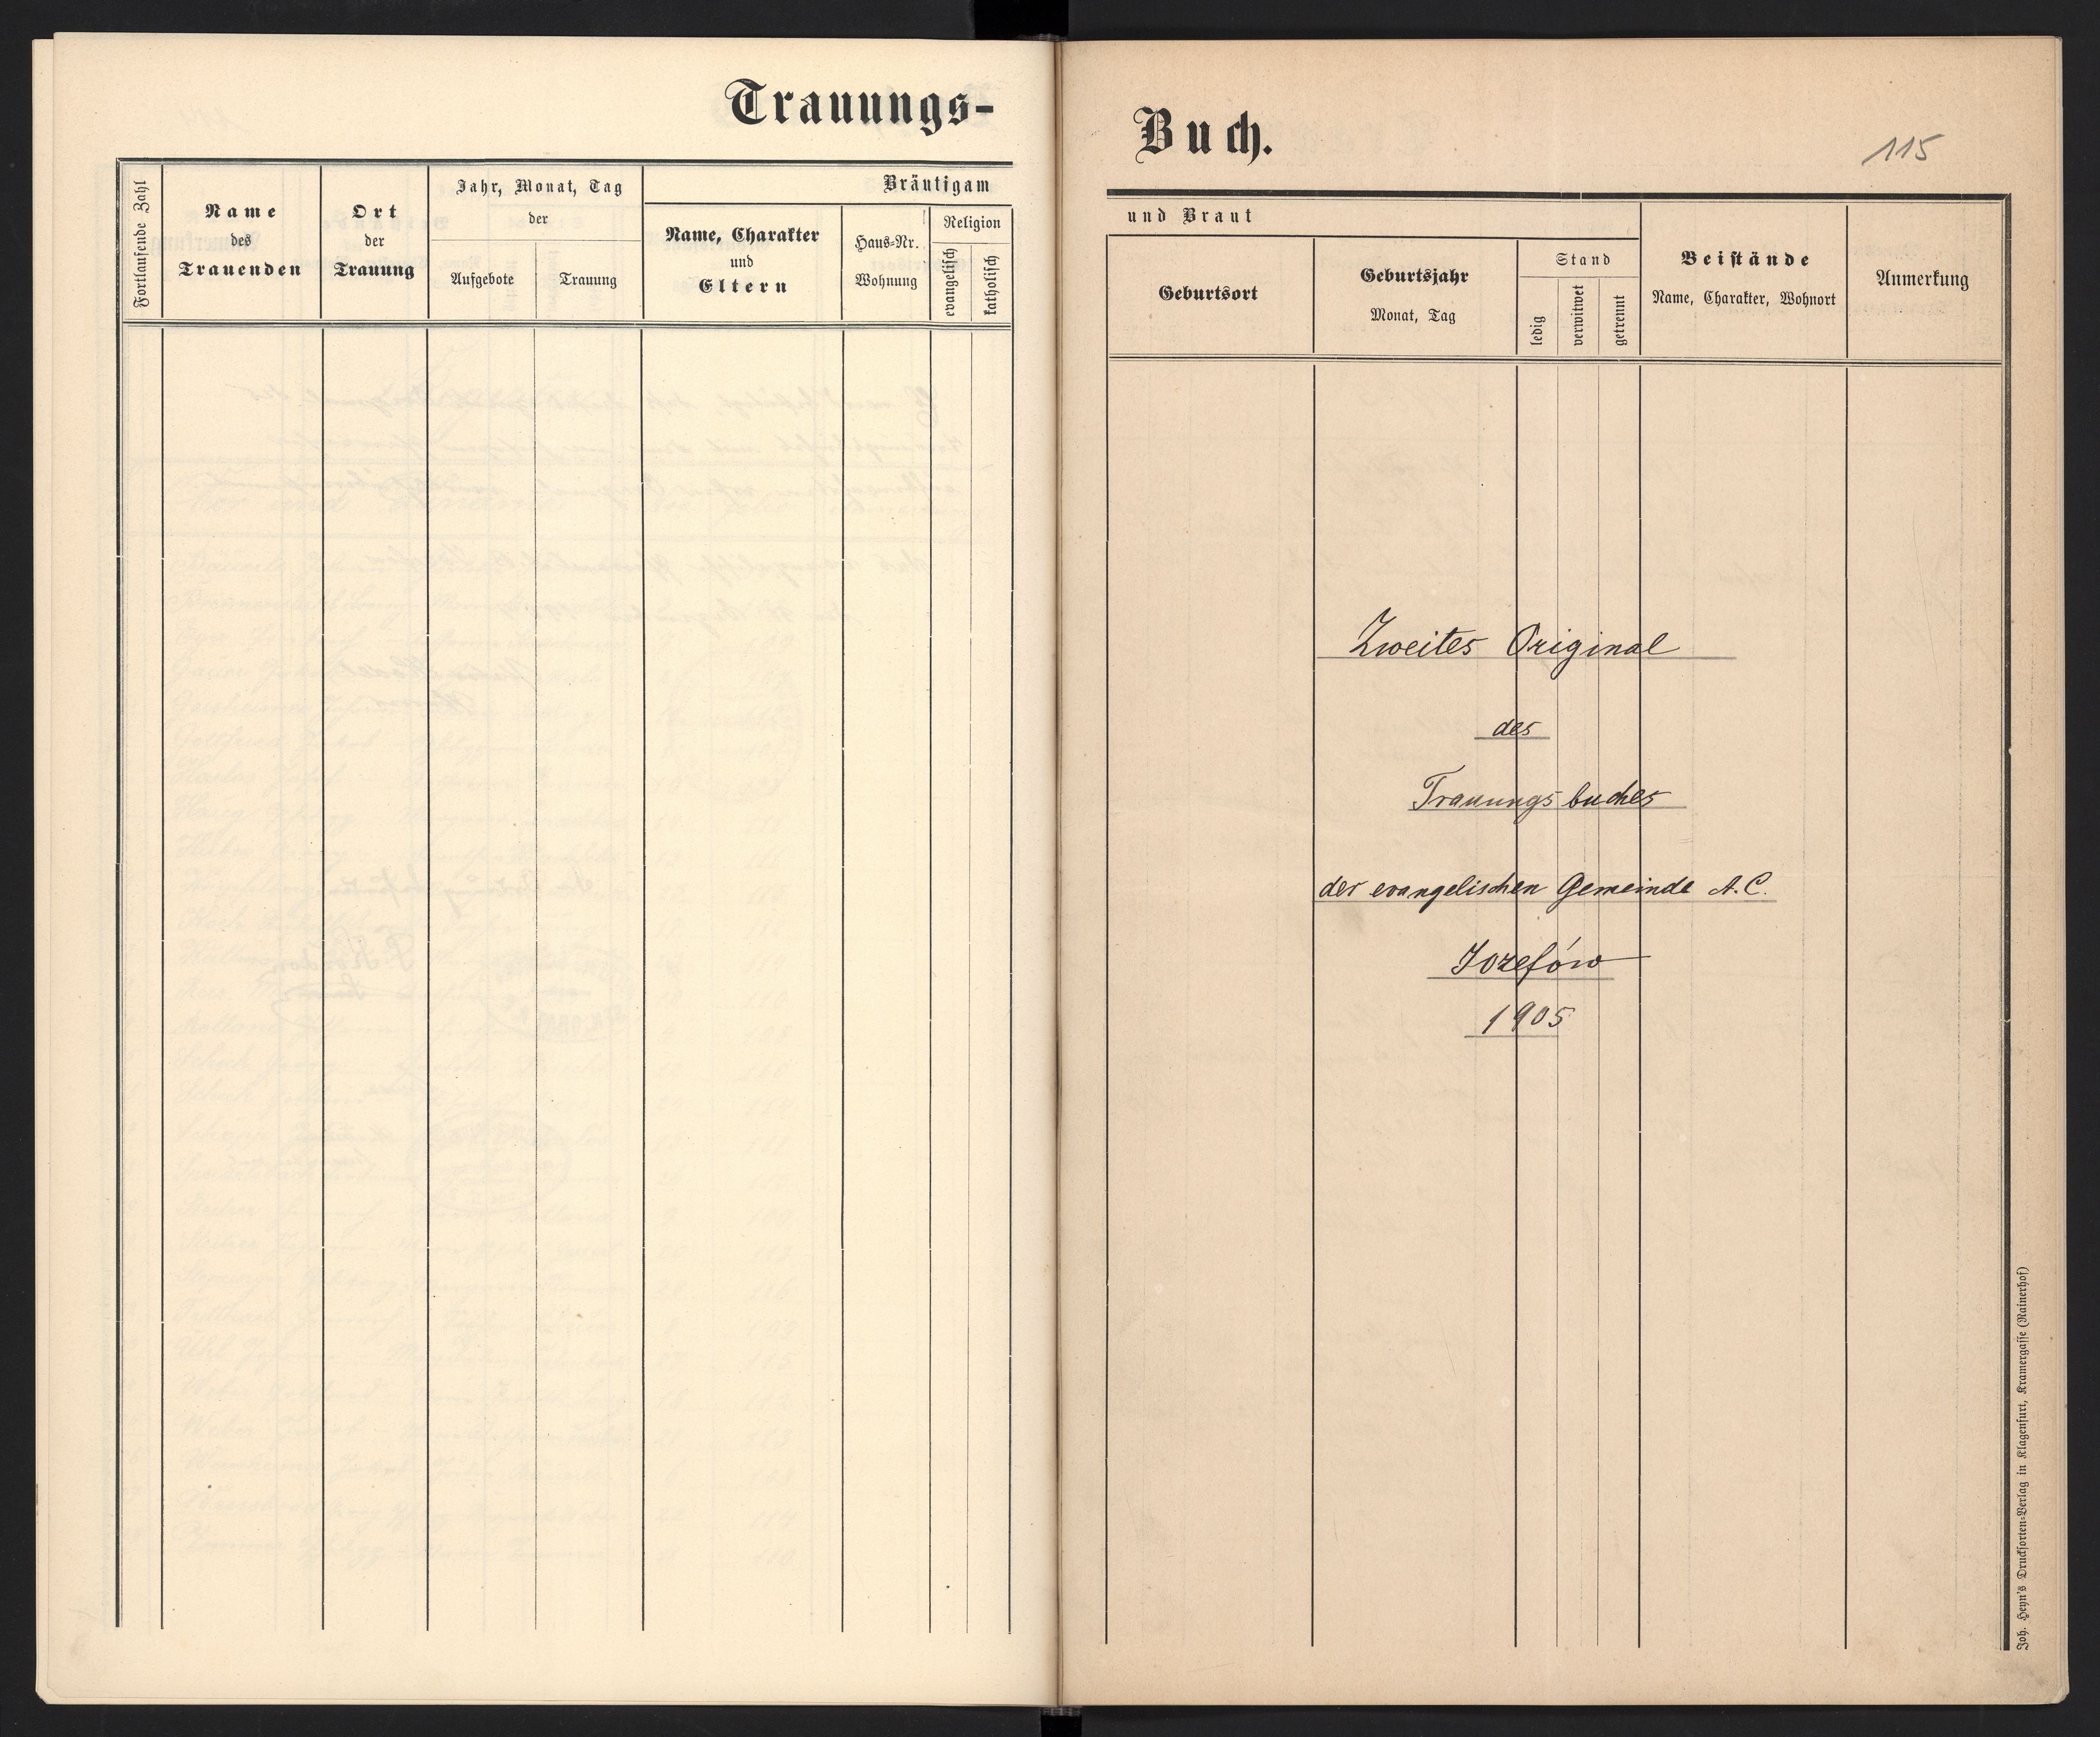 Trauungs-
Fortlaufende Zahl
Name
des
Trauenden
Ort
der
Trauung
Jahr, Monat, Tag
der
Aufgebote
Trauung
Bräutigam
Name, Charakter
und
Eltern
Haus-Nr.
Wohnung
Religion
evangelisch
katholisch
Buch.
115
und Braut
Geburtsort
Geburtsjahr
Monat, Tag
Stand
ledig
verwitwet
getrennt
Beistände
Name, Charakter, Wohnort
Anmerkung
Zweites Original
des
Trauungsbuches
der evangelischen Gemeinde A. C.
Jozefów
1905
Joh. Heyn's Drucksorten-Verlag in Klagenfurt, Kramergasse (Rainerhof)